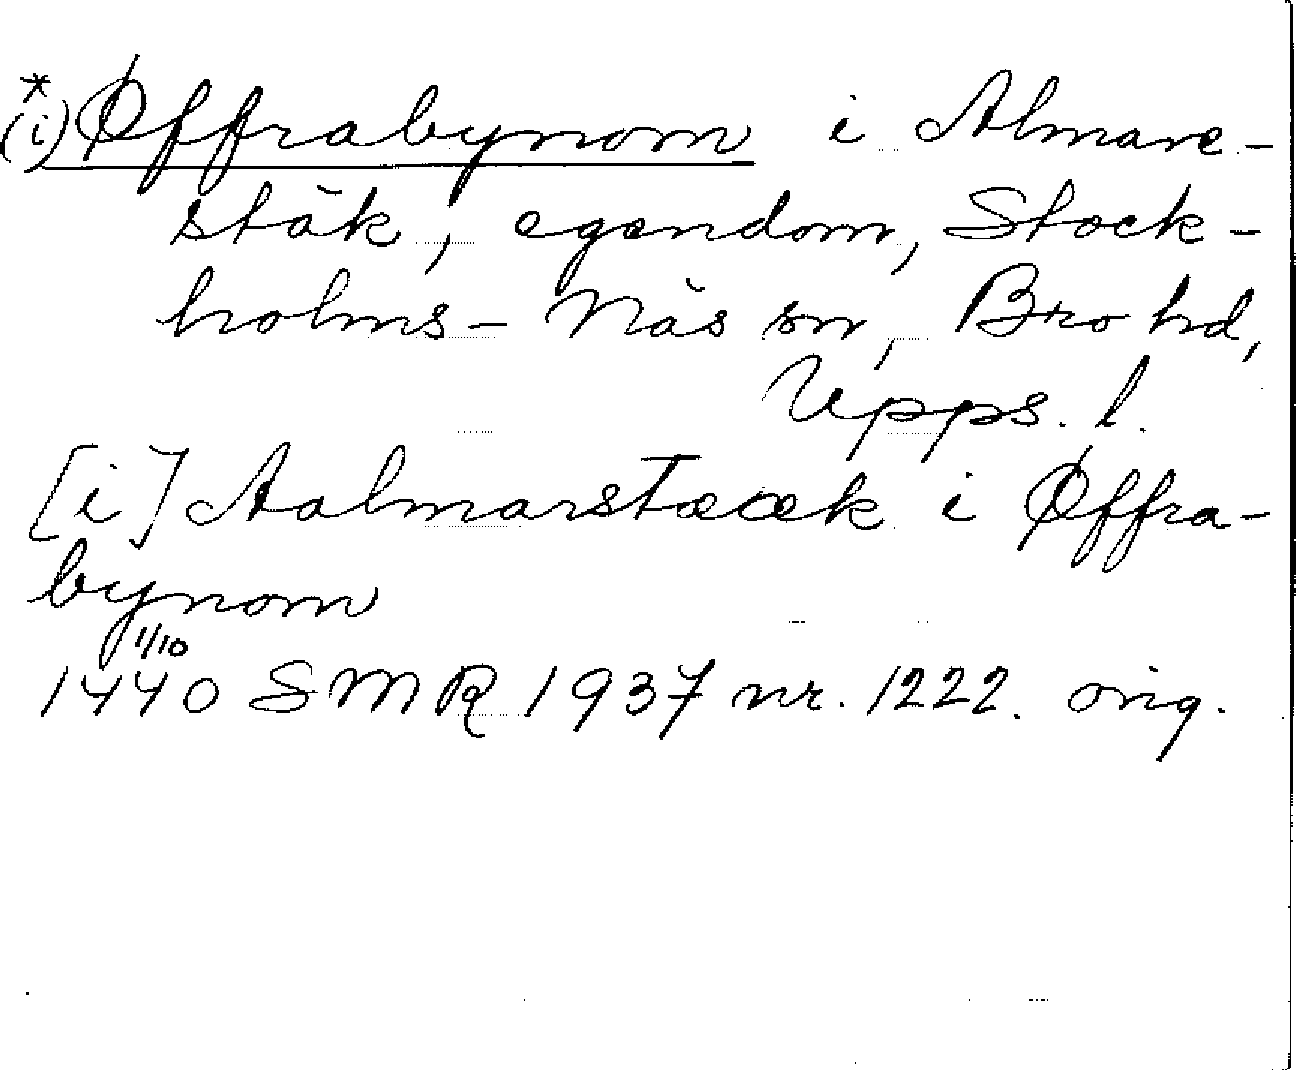 *(i) Øffrabynom i Almare-
stäk, egendom, Stock-
holms-Näs sn, Bro hd,
Upps. l.
[i] Aalmarstæœk i Øffra-
bynom
1440 1/10 SMR 1937 nr. 1222. orig.